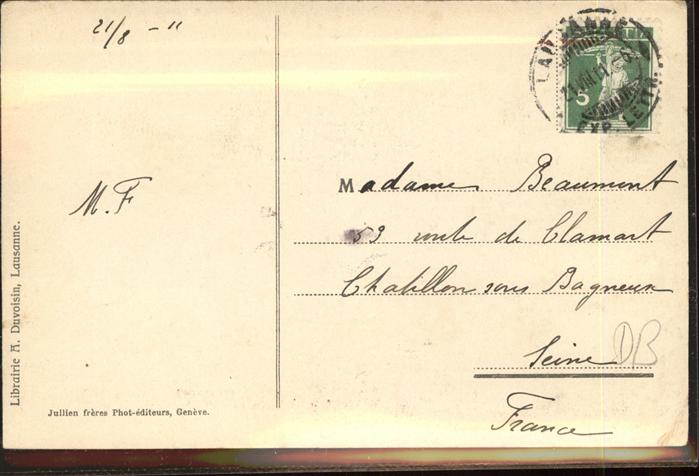 21/8 - 11
M. F
LAUSANNE
EXP. LETTR.
5
Madame Beaumont
53 route de Clamart
Chatillon sous Bagneux
Seine
France
DB
Librairie A. Duvoisin, Lausanne.
Jullien frères Phot-éditeurs, Genève.